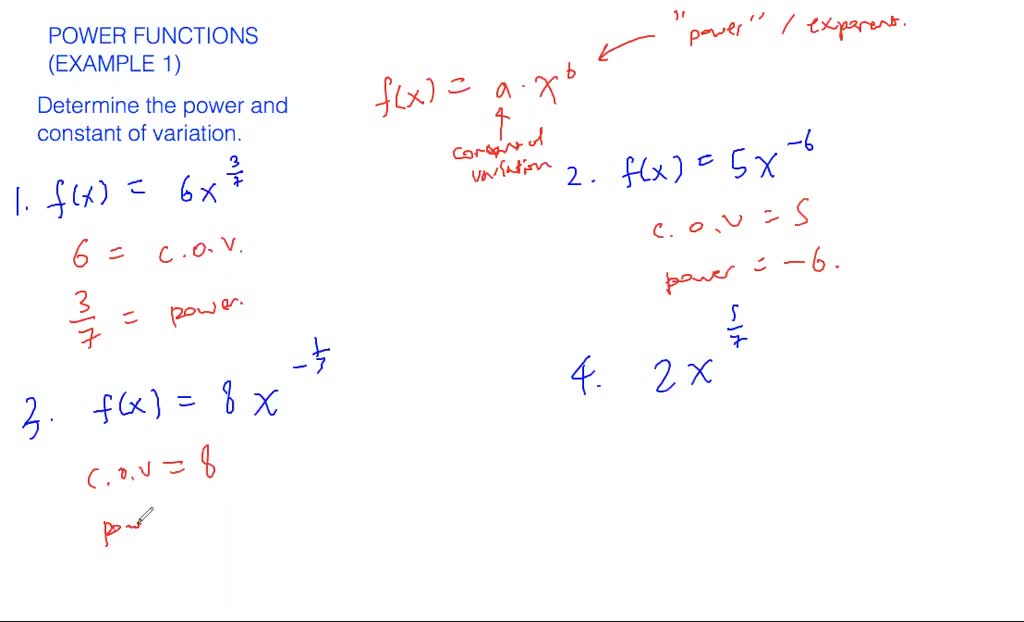 POWER FUNCTIONS
(EXAMPLE 1)
Determine the power and
constant of variation.
"power" / exponent.
f(x) = a · x^b
constant of
variation
1. f(x) = 6x^(3/7)
6 = c.o.v.
3/7 = power.
2. f(x) = 5x^-6
c.o.v = 5
power = -6.
3. f(x) = 8x^(-1/3)
c.o.v = 8
pow
4. 2x^(5/7)